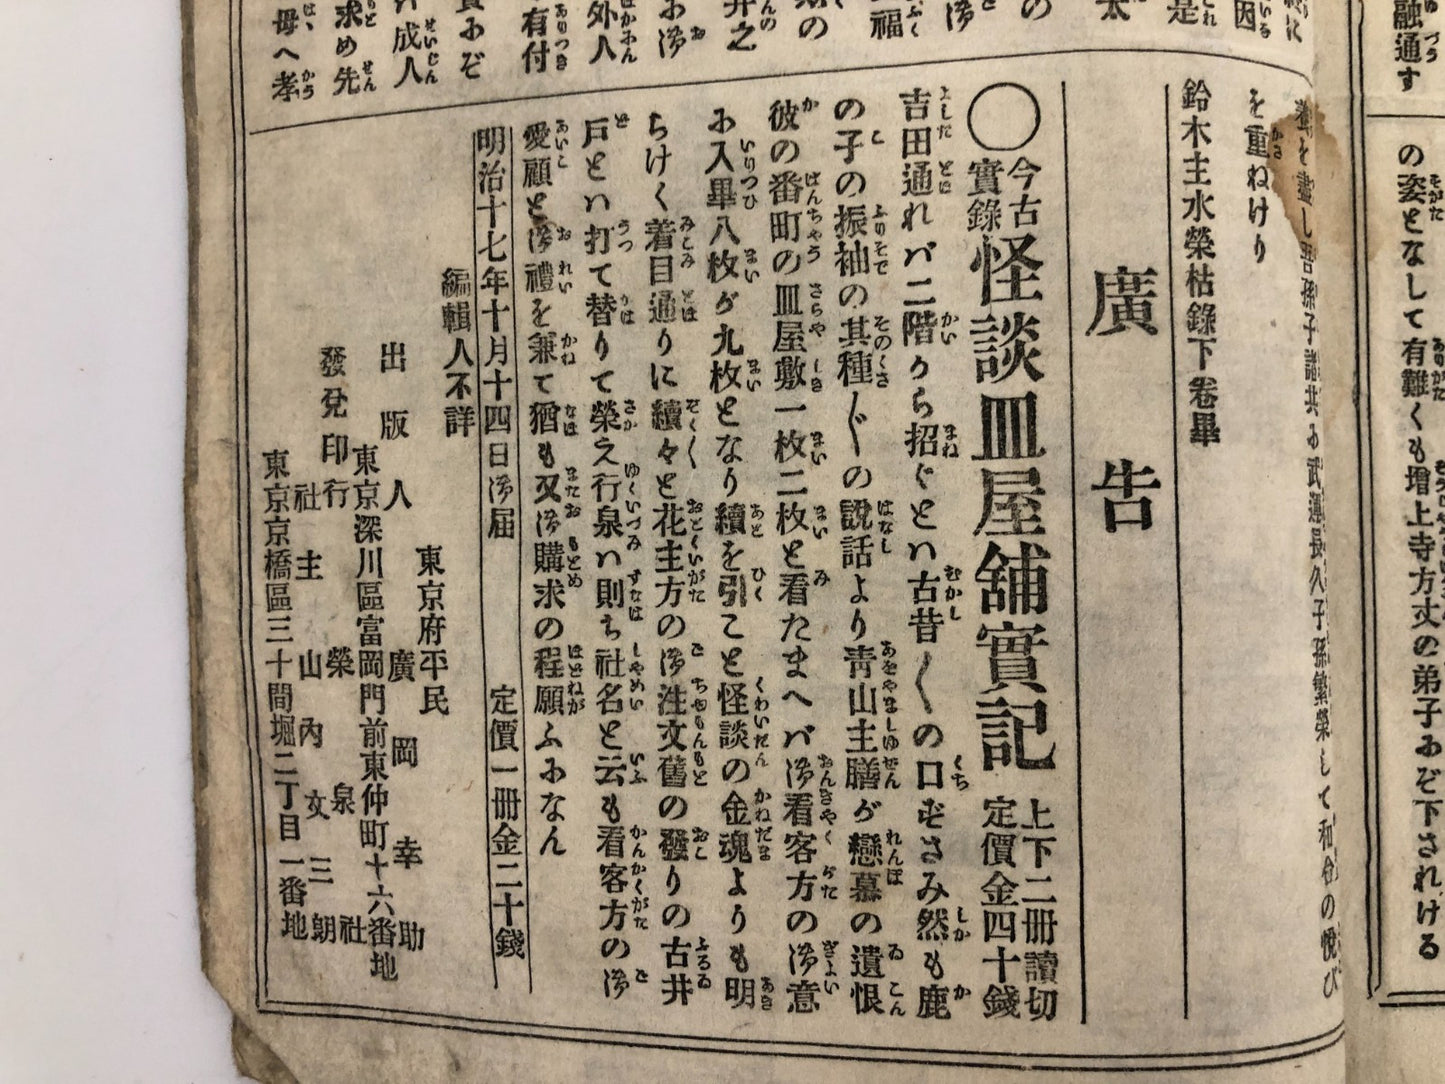 融通す
の姿となして有難くも増上寺方丈の弟子みぞ下されける
因
是
太
の
福
の
井之
み御
外人
有付
成人
求め先
母へ孝
を盡し
子諸共み武運長久子孫繁榮して和合の悦び
を重ねけり
鈴木主水榮枯錄下卷畢
廣告
○今古實錄怪談皿屋舖實記 上下二冊讀切 定價金四十錢
吉田通れバ二階から招ぐとハ古昔〱の口ずさみ然も鹿
の子の振袖の其種〲の說話より靑山主膳が戀慕の遺恨
彼の番町の皿屋敷一枚二枚と看たまへバ御看客方の御意
み入畢八枚が九枚となり續を引こと怪談の金魂よりも明
らけく着目通りに續々と花主方の御注文舊の發りの古井
戸とハ打て替りて榮え行泉ハ則ち社名と云も看客方の御
愛顧と御禮を兼て猶も又御購求の程願ふみなん
明治十七年十月十四日御届 定價一冊金二十錢
編輯人不詳
東京府平民
出版人 廣岡幸助
東京深川區富岡門前東仲町十六番地
發兌印行 榮泉社
社主 山內文三朗
東京京橋區三十間堀二丁目一番地